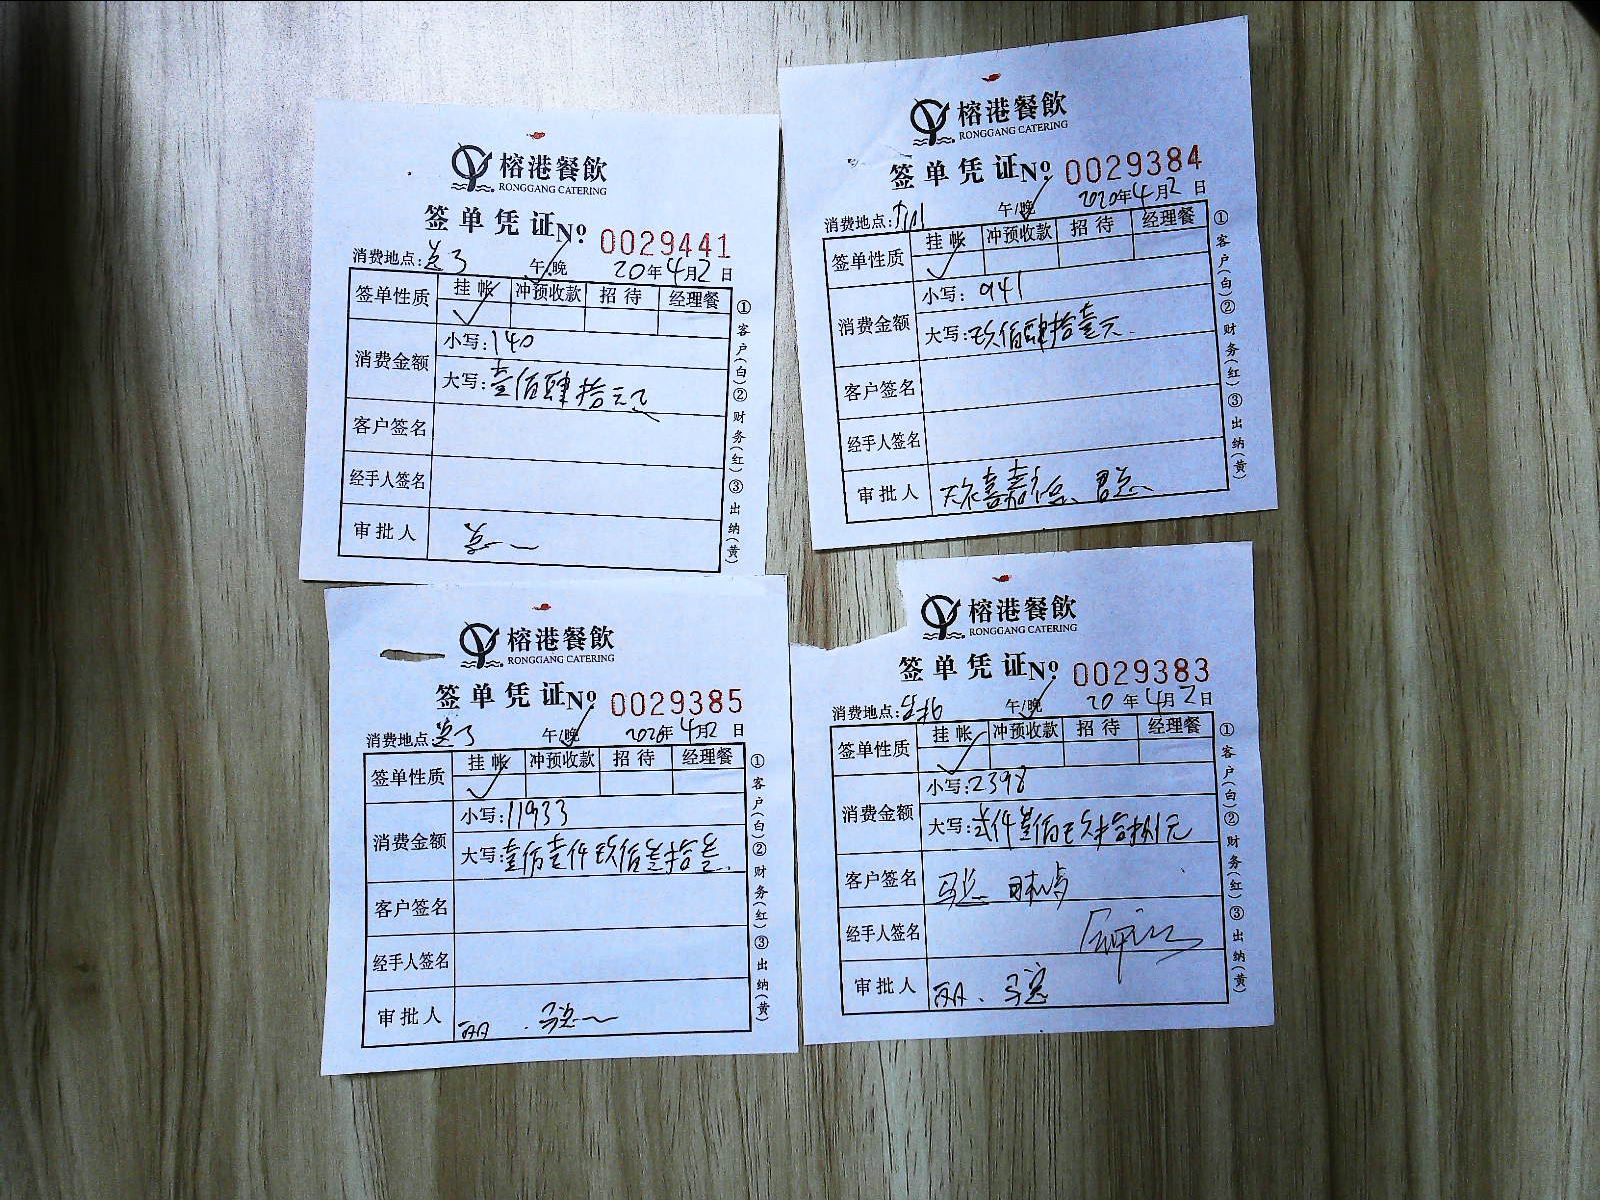 榕港餐飲
RONGGANG CATERING
签单凭证№ 0029441
消费地点: 午/晚 20年4月2日
签单性质 挂帐 冲预收款 招待 经理餐
消费金额 小写:140
大写:壹佰肆拾元
客户签名
经手人签名
审批人
①客户(白)②财务(红)③出纳(黄)
榕港餐飲
RONGGANG CATERING
签单凭证№ 0029384
消费地点: 午/晚 2020年4月2日
签单性质 挂帐 冲预收款 招待 经理餐
消费金额 小写:941
大写:玖佰肆拾壹元
客户签名
经手人签名
审批人
①客户(白)②财务(红)③出纳(黄)
榕港餐飲
RONGGANG CATERING
签单凭证№ 0029385
消费地点: 午/晚 2020年4月2日
签单性质 挂帐 冲预收款 招待 经理餐
消费金额 小写:11933
大写:壹佰壹仟玖佰叁拾叁
客户签名
经手人签名
审批人
①客户(白)②财务(红)③出纳(黄)
榕港餐飲
RONGGANG CATERING
签单凭证№ 0029383
消费地点: 午/晚 20年4月2日
签单性质 挂帐 冲预收款 招待 经理餐
消费金额 小写:2398
大写:贰仟叁佰玖拾捌元
客户签名 马总
经手人签名
审批人 马总
①客户(白)②财务(红)③出纳(黄)